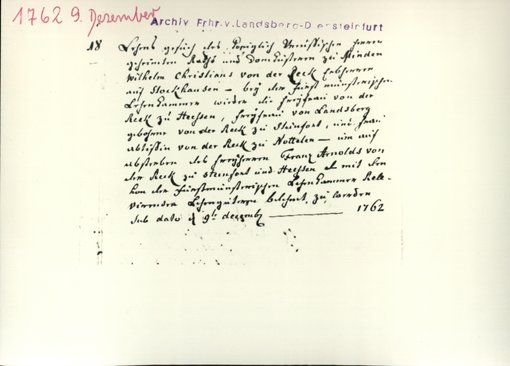 1762 9. Dezember
Archiv Frhr.v.Landsberg-D ensteinfurt
18 Lehens gesuch des Königlich Preussischen herren
geheimten Raths und Domküsteren zu Minden
Wilhelm Christians von der Reck Erbherren
auf Stockhausen – bey der fürst münsterischen
Lehenkammer wieder die freyfrau von der
Reck zu Heessen, freyfrau von Landsberg
gebohrne von der Reck zu Steinfort, und frau
abtissin von der Reck zu Nottelen – um auf
absterben des freyherren Franz Arnolds von
der Reck zu Steinfort und Heessen mit
der fürstmünsterischen Lehenkammer Rele-
virenden Lehengüteren belehnet zu werden
sub dato d 9t decemb 1762